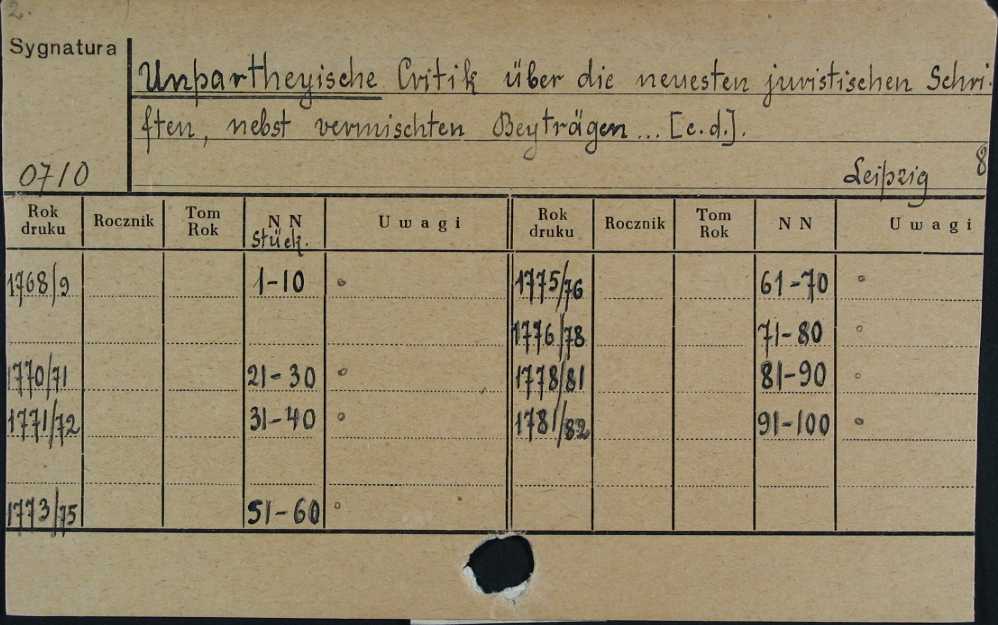 2.
Sygnatura
Unpartheyische Critik über die neuesten juristischen Schri-
ften, nebst vermischten Beyträgen... [c.d.].
0710
Leipzig 8
Rok druku Rocznik Tom Rok N N Stück. Uwagi Rok druku Rocznik Tom Rok N N Uwagi
1768/9 1-10 ° 1775/76 61-70 °
1776/78 71-80 °
1770/71 21-30 ° 1778/81 81-90 °
1771/72 31-40 ° 1781/82 91-100 °
1773/75 51-60 °